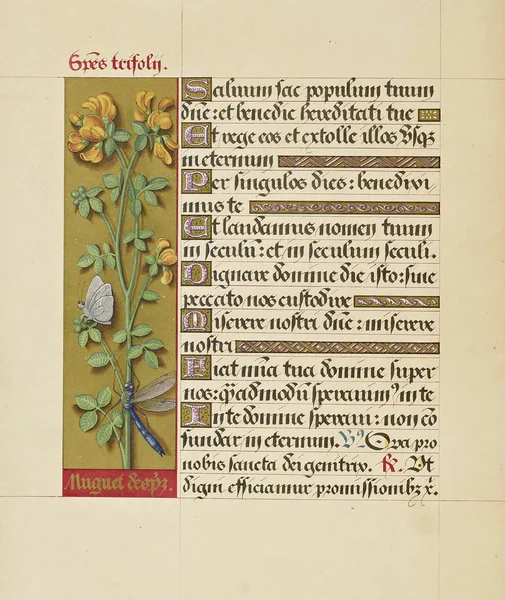 Spēs trifolij.
Saluum fac populum tuum
dn̄e: et benedic hereditati tue
Et rege eos et extolle illos vsqȝ
in eternum
Per singulos dies: benedixi
mus te
Et laudamus nomen tuum
in seculū: et in seculum seculi.
Dignare domine die isto: sine
peccato nos custodire
Miserere nostri dn̄e: miserere
nostri
Fiat mīa tua domine super
nos: quēadmodū sperauimꝰ in te
In te domine speraui: non cō
fundar in eternum. ℣. Ora pro
nobis sancta dei genitrix. ℟. Vt
digni efficiamur promissionibȝ x̄.
Muguet